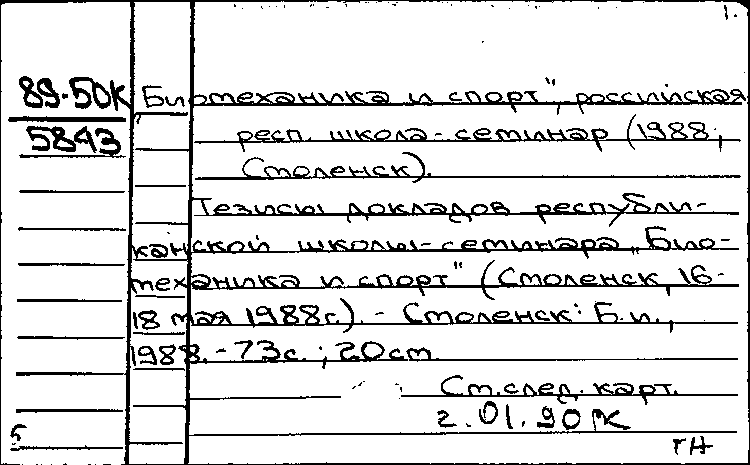 1.
89-50К
5843
„Биомеханика и спорт", российская
респ. школа-семинар (1988;
Смоленск).
Тезисы докладов республи-
канской школы-семинара „Био-
механика и спорт" (Смоленск, 16-
18 мая 1988г.). - Смоленск: Б.и.,
1988. - 73с.; 20см.
См.след. карт.
2.01.90
ГН